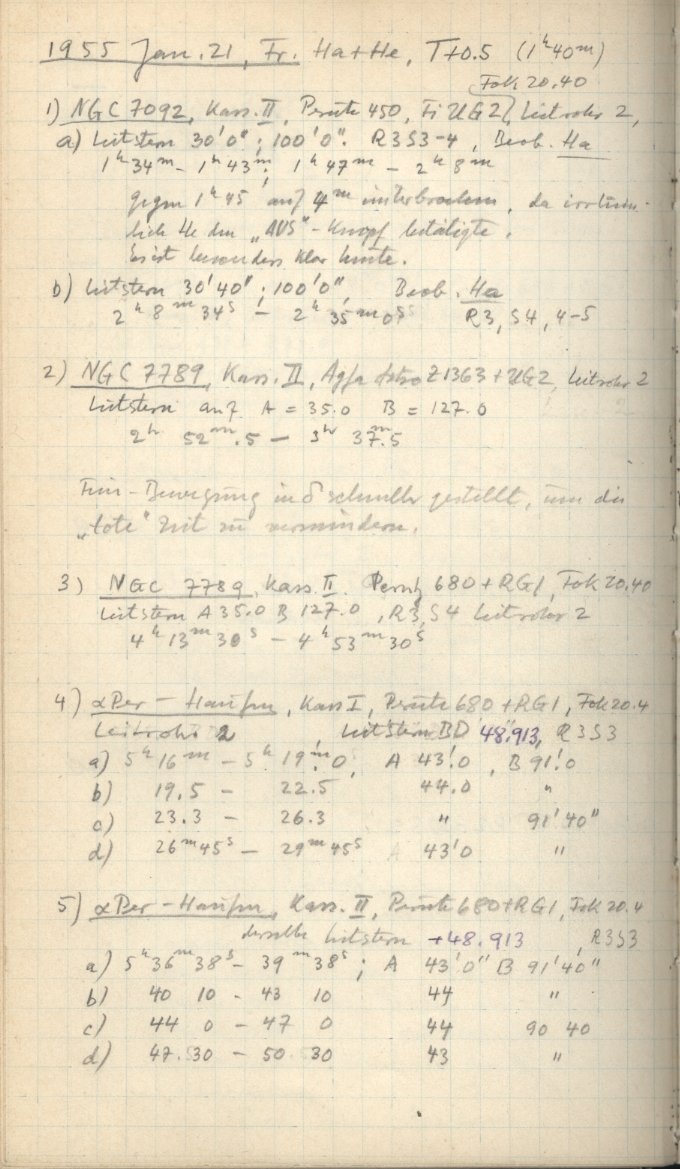 1955 Jan. 21, Fr. Ha+He, T+0.5 (1ʰ40ᵐ)
Fok 20.40
1) NGC 7092, Kass. II, Perutz 450, Fi UG2, Leitrohr 2,
a) Leitstern 30'0"; 100'0". R3S3-4, Beob. Ha
1ʰ34ᵐ - 1ʰ43ᵐ; 1ʰ47ᵐ - 2ʰ8ᵐ
gegen 1ʰ45 auf 4ᵐ unterbrochen, da irrtüm-
lich He den „AUS"-Knopf betätigte.
Es ist besonders klar heute.
b) Leitstern 30'40"; 100'0", Beob. Ha
2ʰ 8ᵐ 34ˢ - 2ʰ 35ᵐ 05ˢ R3, S4, 4-5
2) NGC 7789, Kass. II, Agfa Astro Z1363+UG2, Leitrohr 2
Leitstern auf A = 35.0 B = 127.0
2ʰ 52ᵐ.5 - 3ʰʳ 37ᵐ.5
Fein-Bewegung in δ schneller gestellt, um die
„tote" Zeit zu vermindern.
3) NGC 7789, Kass. II. Perutz 680+RG1, Fok 20.40
Leitstern A 35.0 B 127.0, R3, S4 Leitrohr 2
4ʰ 13ᵐ 30ˢ - 4ʰ 53ᵐ 30ˢ
4) αPer-Haufen, Kass I, Perutz 680+RG1, Fok 20.4
Leitrohr 2, Leitstern BD 48.913, R3S3
a) 5ʰ 16ᵐ - 5ʰ 19ᵐ.0, A 43'.0, B 91'.0
b) 19.5 - 22.5 44.0 "
c) 23.3 - 26.3 " 91'40"
d) 26ᵐ45ˢ - 29ᵐ45ˢ A 43'0 "
5) αPer-Haufen, Kass. II, Perutz 680+RG1, Fok 20.4
derselbe Leitstern +48.913, R3S3
a) 5ʰ36ᵐ38ˢ - 39ᵐ38ˢ; A 43'0" B 91'40"
b) 40 10 - 43 10 44 "
c) 44 0 - 47 0 44 90 40
d) 47.30 - 50 30 43 "